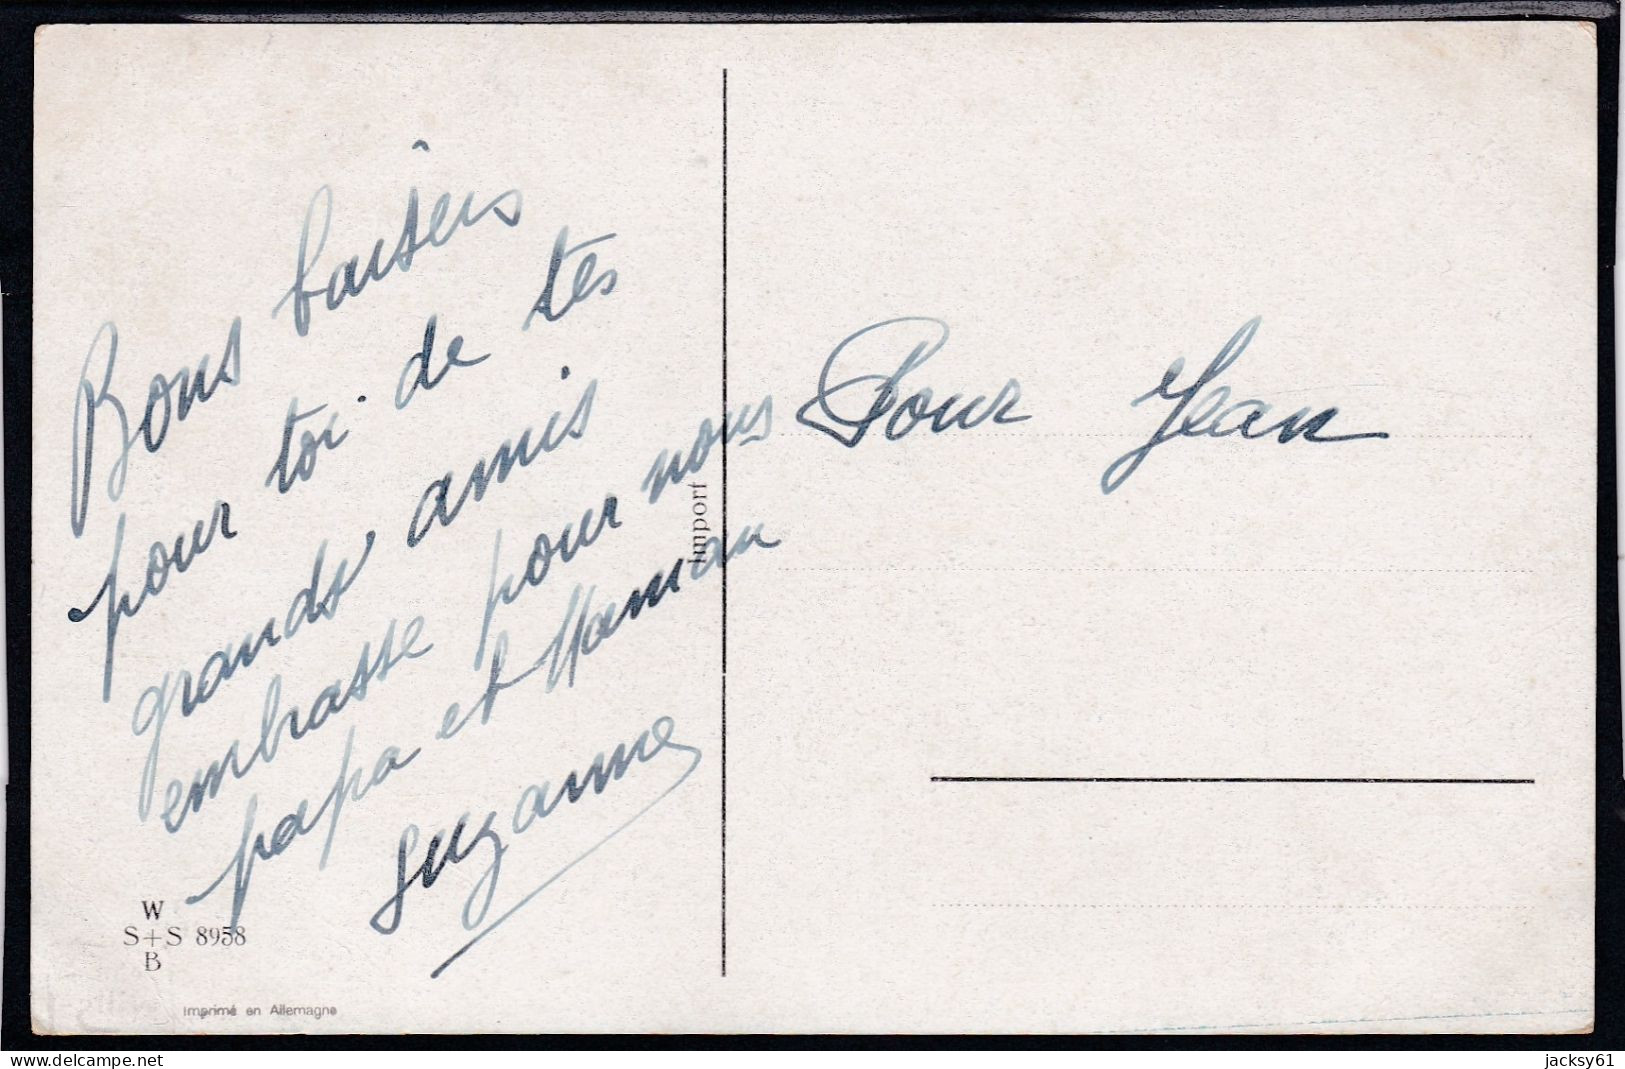 Bons baisers
pour toi de tes
grands amis
embrasse pour nous
papa et Maman
Suzanne
Pour Jean
Import
W
S+S 8958
B
Imprimé en Allemagne
www.delcampe.net
jacksy61